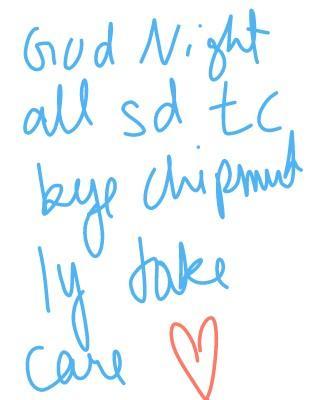 Good Night
all sd tc
bye chipmut
ly take
care